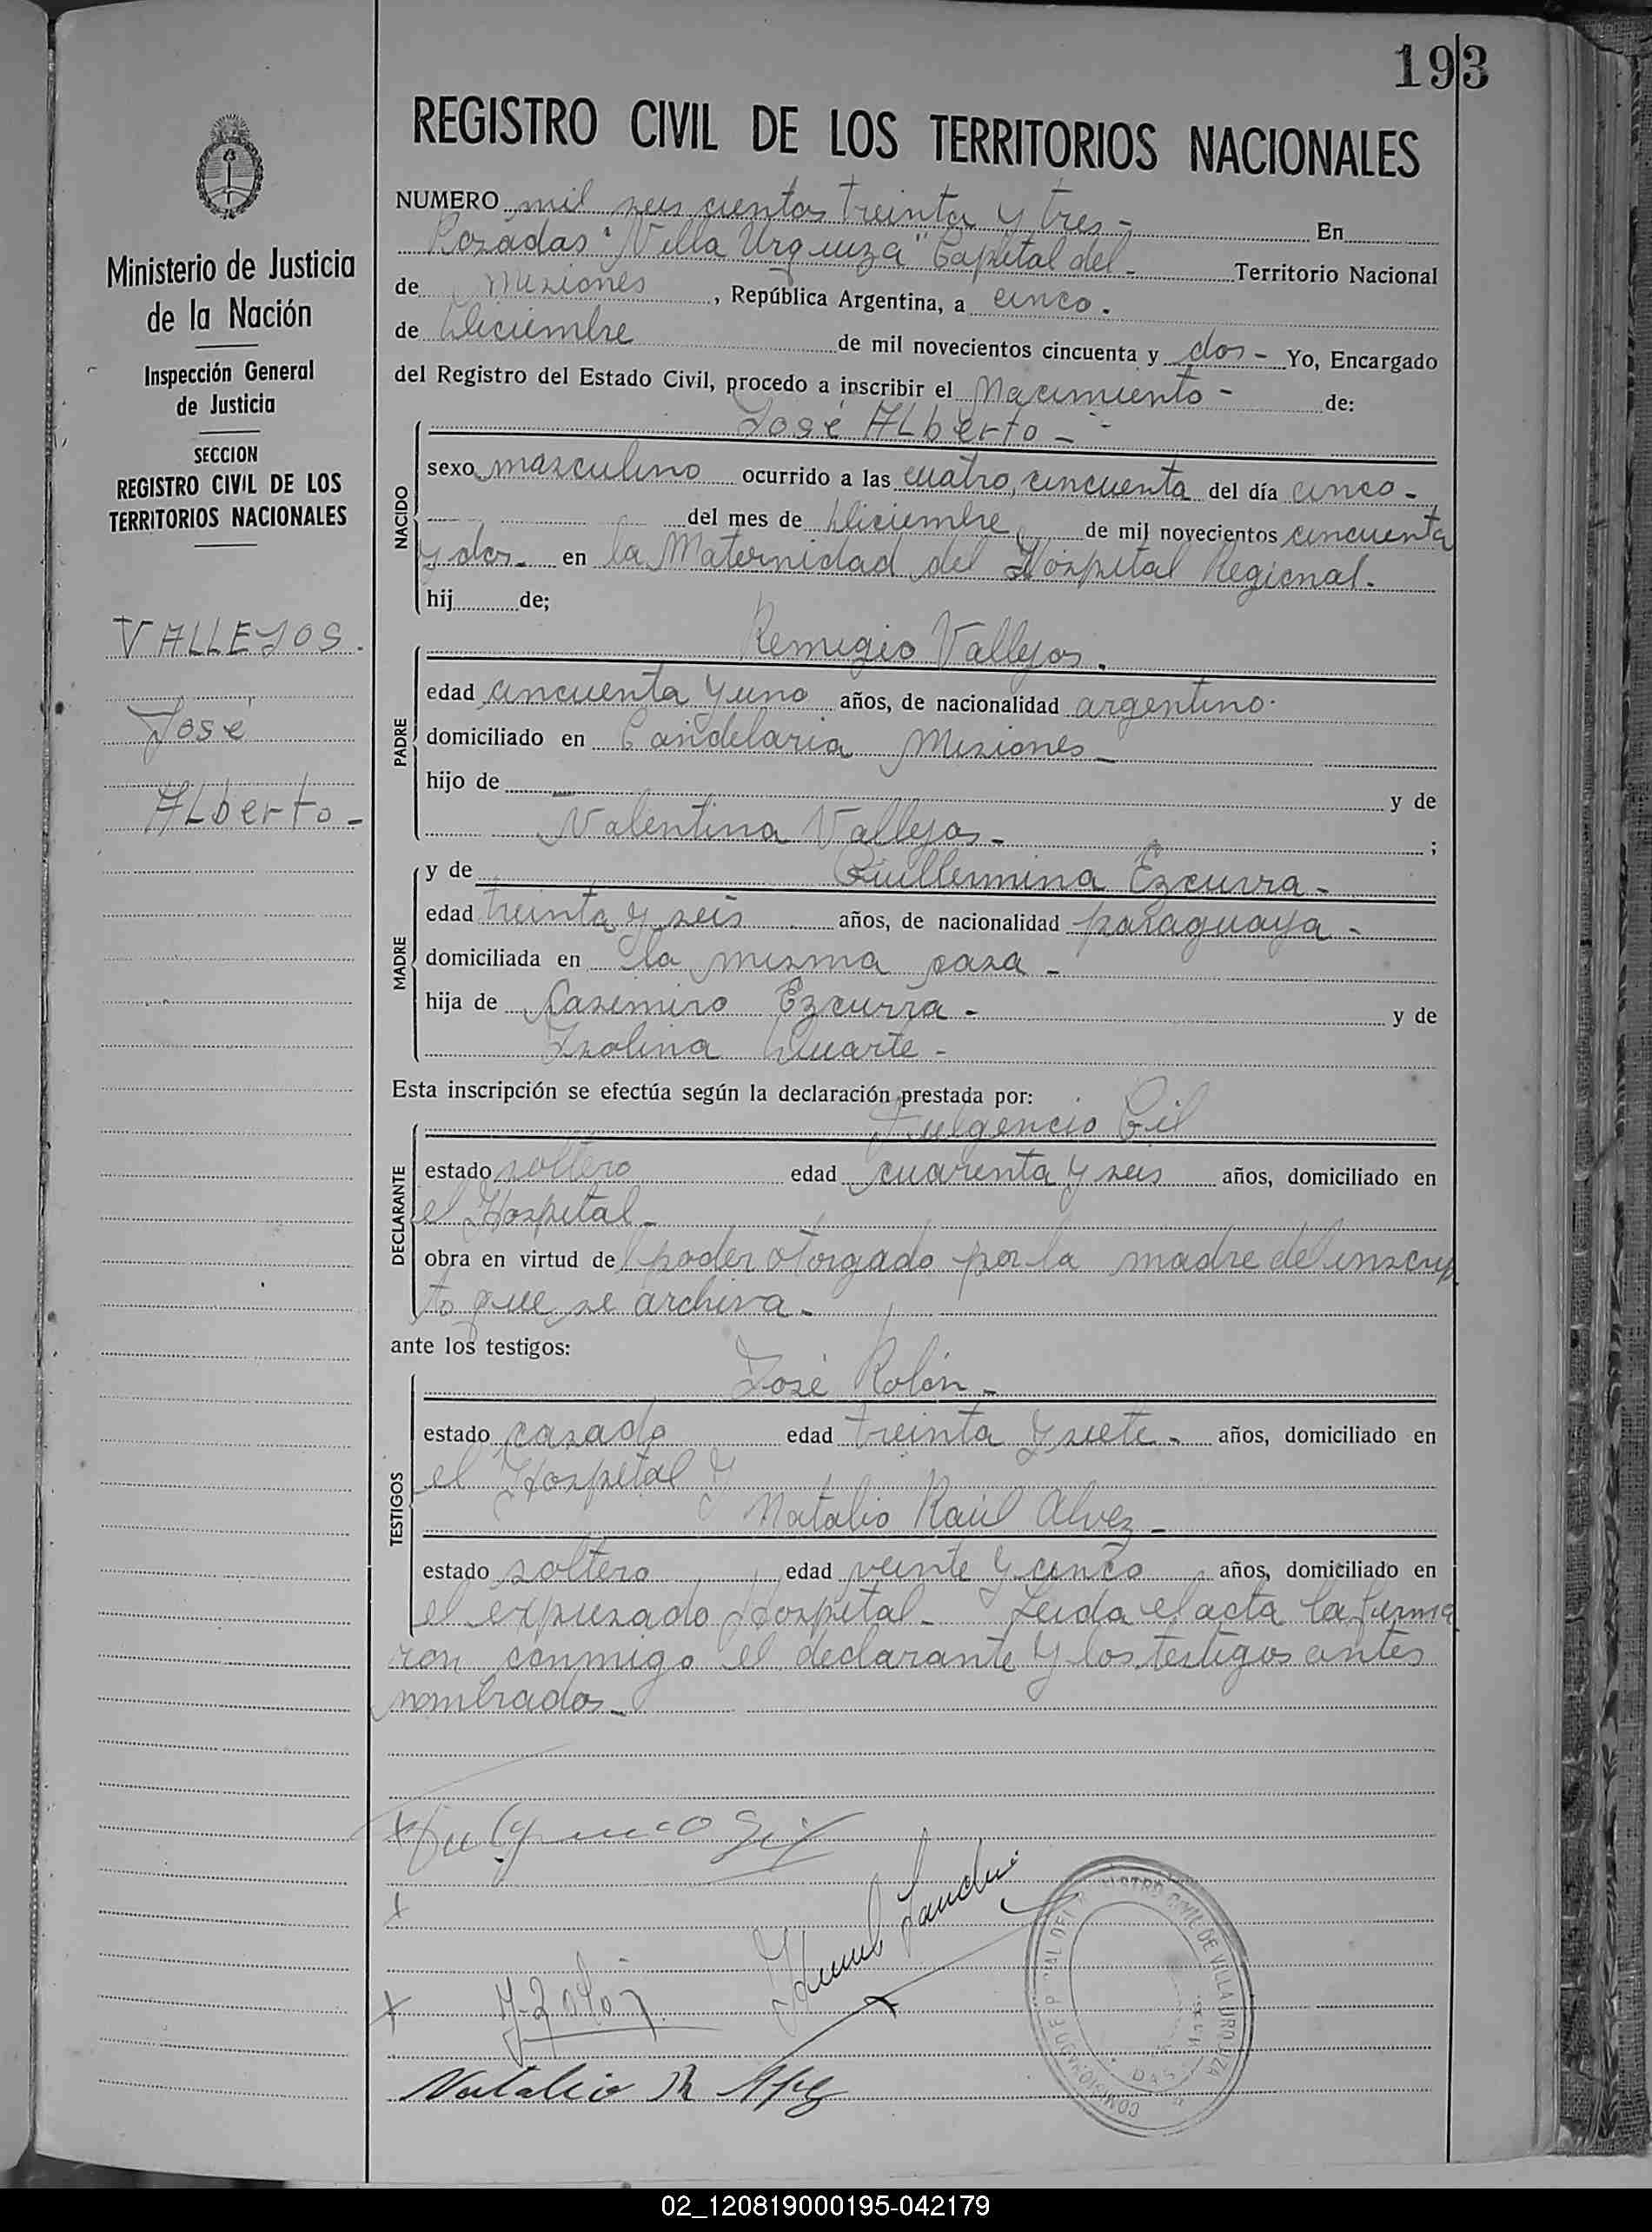 193
REGISTRO CIVIL DE LOS TERRITORIOS NACIONALES
Ministerio de Justicia
de la Nación
Inspección General
de Justicia
SECCION
REGISTRO CIVIL DE LOS
TERRITORIOS NACIONALES
VALLEJOS.
José
ALberto -
NUMERO mil seis cientos treinta y tres - En
Posadas "Villa Urquiza" Capital del - Territorio Nacional
de Misiones, República Argentina, a cinco.
de Diciembre de mil novecientos cincuenta y dos - Yo, Encargado
del Registro del Estado Civil, procedo a inscribir el Nacimiento - de:
José ALberto -
NACIDO
sexo masculino ocurrido a las cuatro, cincuenta del día cinco -
del mes de Diciembre de mil novecientos cincuenta
y dos. en la Maternidad del Hospital Regional.
hij de;
Remigio Vallejos.
PADRE
edad cincuenta y uno años, de nacionalidad argentino.
domiciliado en Candelaria Misiones -
hijo de — y de
Valentina Vallejos - ;
MADRE
y de Guillermina Ezcurra -
edad treinta y seis años, de nacionalidad paraguaya -
domiciliada en la misma casa -
hija de Casimiro Ezcurra - y de
Isolina Duarte -
Esta inscripción se efectúa según la declaración prestada por:
Fulgencio Gil
DECLARANTE
estado soltero edad cuarenta y seis años, domiciliado en
el Hospital -
obra en virtud del poder otorgado por la madre del inscrip
to que se archiva -
ante los testigos:
José Rolón -
TESTIGOS
estado casado edad treinta y siete - años, domiciliado en
el Hospital y
Natalio Raúl Alvez -
estado soltero edad veinte y cinco años, domiciliado en
el expresado Hospital - Leida el acta la firma
ron conmigo el declarante y los testigos antes
nombrados -
Fulgencio Gil
J. Rolon
Natalio R Alvez
DE VILLA URQUIZA
02_120819000195-042179